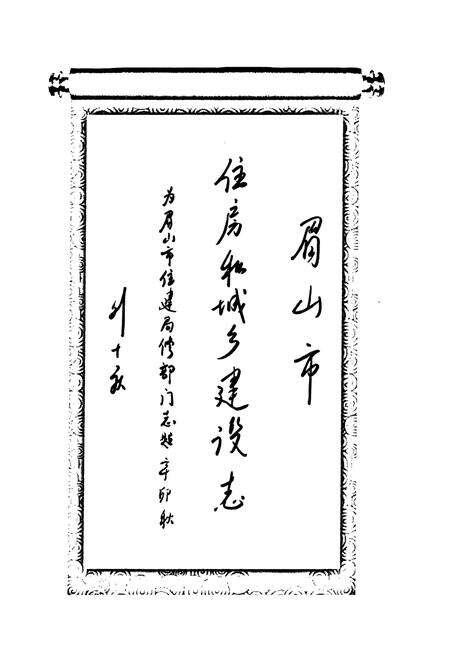 眉山市
住房和城乡建设志
为眉山市住建局修部门志题 辛卯秋
刘十秋